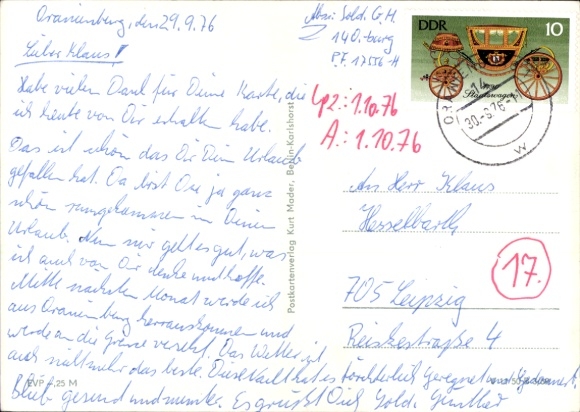 Oranienburg, den 29.9.76
Lieber Klaus!
Habe vielen Dank für Deine Karte, die
ich heute von Dir erhalten habe.
Das ist schön das Dir Dein Urlaub
gefallen hat. Da bist Du ja ganz
schön rumgekommen in Deinem
Urlaub. Nun mir geht es gut, was
ich auch von Dir denke und hoffe.
Mitte nächsten Monat werde ich
aus Oranienburg herrauskommen und
werde an die Grenze versetzt. Das Wetter ist
auch nicht mehr das beste. Diese Nacht hat es fürchterlich geregnet und
Bleib gesund und munter. Es grüßt Dich Sold. Günther
EVP 0,25 M
Postkartenverlag Kurt Mader, Berlin-Karlshorst
Abs.: Sold. G. H.
140.burg
P.F. 17556-H
Lpz.: 1.10.76
A.: 1.10.76
DDR 10
Staatswagen
30.-9.76
An Herr Klaus
Hesselbarth
17.
705 Leipzig
Reiskestraße 4